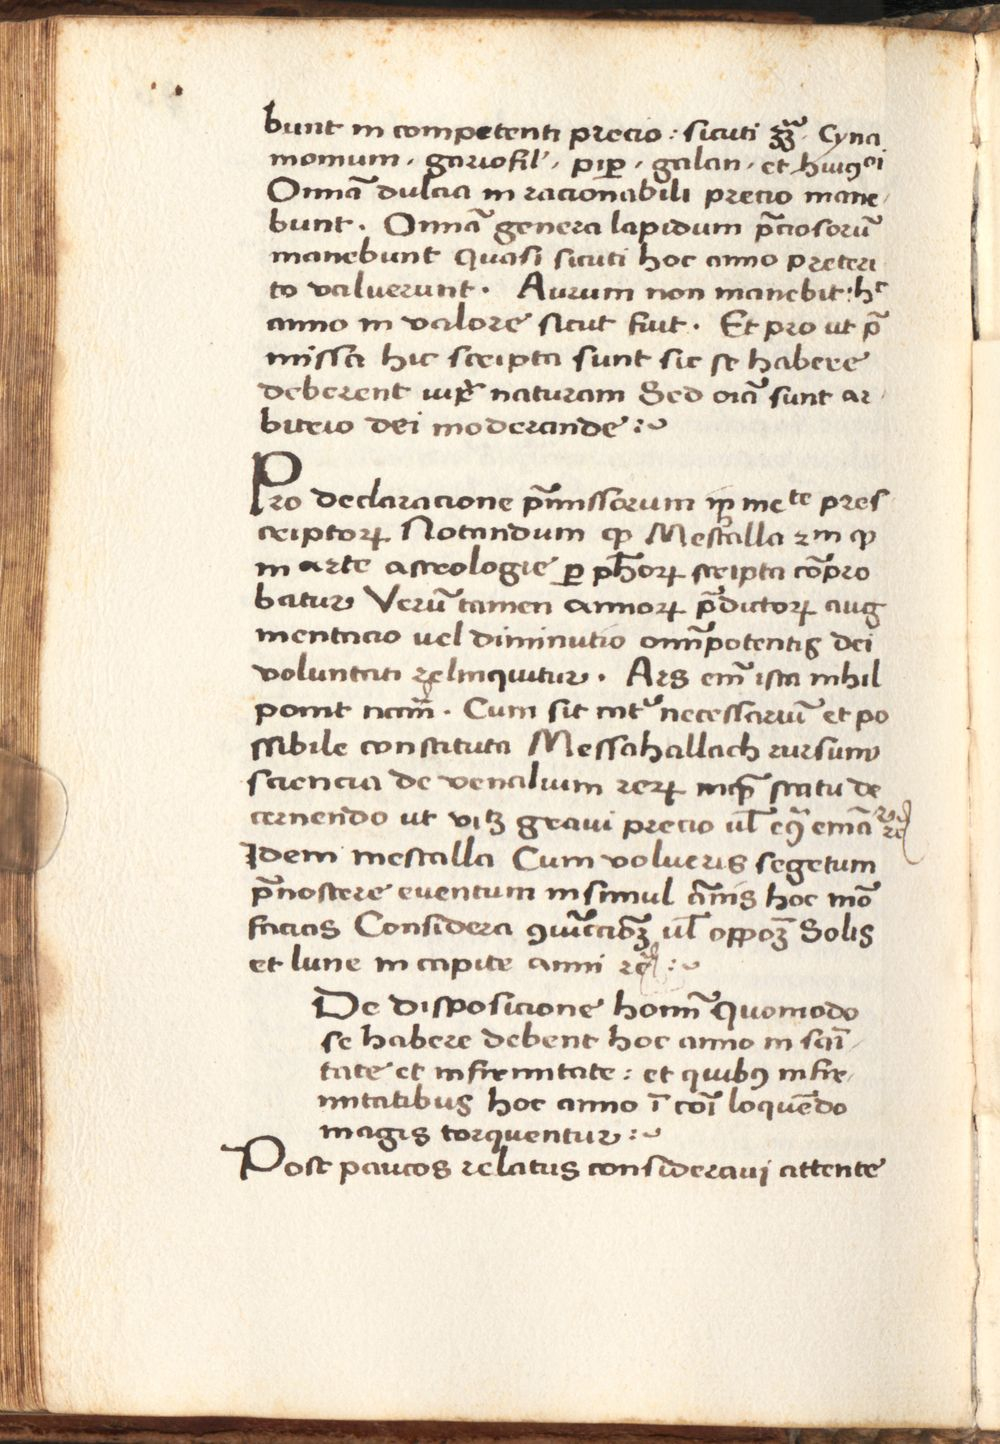 bunt in competenti precio : sicuti ʒʒ̃ · Cyna
momum · gariofil' · pip̲ · galan · et huiꝰꝰi
Om̃a dulcia in racionabili precio mane
bunt · Om̃a genera lapidum p̃ciosorũ
manebunt quasi sicuti hoc anno preteri
to valuerunt · Aurum non manebit : hᶜ
anno in valore sicut fuit · Et pro ut p̃
missa hic scripta sunt sic se habere
deberent naturam Sed oĩa sunt ar
bitrio dei moderande :~
Pro declaracione p̃missorum in meᵗᵉ pres
criptorꝝ Notandum ꝙ Mescalla ꝙ
in arte astrologie ꝑ ph̃orꝝ scripta cõpro
batur Verũ tamen annorꝝ p̃dictorꝝ aug
mentacio uel diminutio omĩpotentis dei
voluntati relinquitur · Ars em̃ ista nihil
ponit nam̃ · Cum sit necessariũ et po
ssibile constituta Messahallach rursum
sciencia de venalium rerꝝ statu de
cernendo ut vitꝫ graui precio ul̃
Idem mescalla Cum volueris segetum
p̃noscere eventum insimul hoc mõ
facias Considera ꝯiũccõꝫ ul̃ opp̃oꝫ Solis
et lune in capite anni rc̃ :~
De disposicione homĩ quomodo
se habere debent hoc anno in sai
tate et infirmitate : et quibꝰ infir
mitatibus hoc anno ĩ cõi loquẽdo
magis torquentur :~
Post paucos relatus consideraui attente